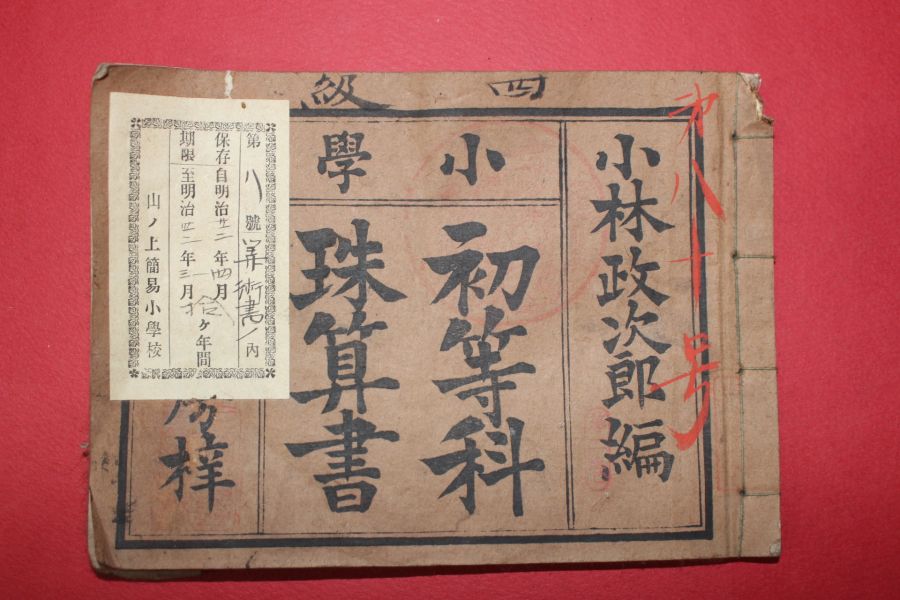 四級
第八十号
小林政次郎編
小學
初等科
珠算書
梓
第八號算術書ノ内
保存自明治廿二年四月
拾ヶ年間
期限至明治卅二年三月
山ノ上簡易小學校